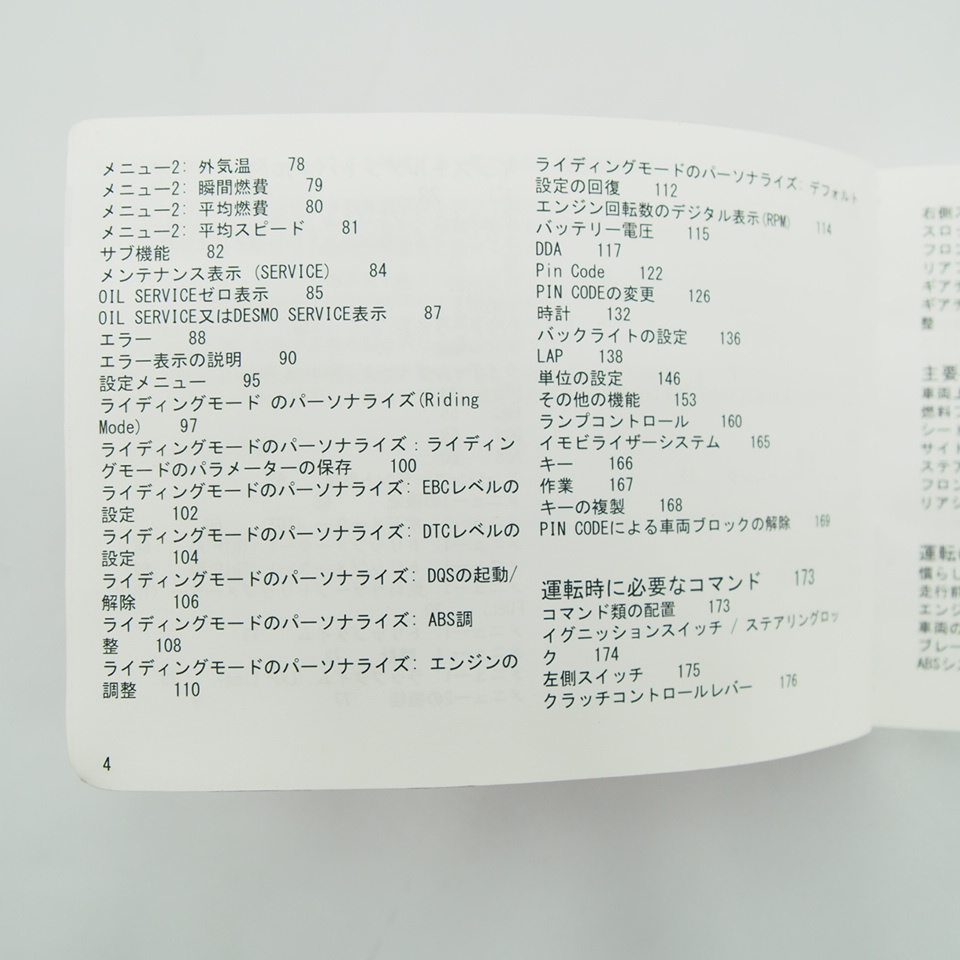 メニュー2: 外気温 78
メニュー2: 瞬間燃費 79
メニュー2: 平均燃費 80
メニュー2: 平均スピード 81
サブ機能 82
メンテナンス表示 (SERVICE) 84
OIL SERVICEゼロ表示 85
OIL SERVICE又はDESMO SERVICE表示 87
エラー 88
エラー表示の説明 90
設定メニュー 95
ライディングモード のパーソナライズ(Riding
Mode) 97
ライディングモードのパーソナライズ：ライディン
グモードのパラメーターの保存 100
ライディングモードのパーソナライズ: EBCレベルの
設定 102
ライディングモードのパーソナライズ: DTCレベルの
設定 104
ライディングモードのパーソナライズ: DQSの起動/
解除 106
ライディングモードのパーソナライズ: ABS調
整 108
ライディングモードのパーソナライズ: エンジンの
調整 110
4
ライディングモードのパーソナライズ: デフォルト
設定の回復 112
エンジン回転数のデジタル表示(RPM) 114
バッテリー電圧 115
DDA 117
Pin Code 122
PIN CODEの変更 126
時計 132
バックライトの設定 136
LAP 138
単位の設定 146
その他の機能 153
ランプコントロール 160
イモビライザーシステム 165
キー 166
作業 167
キーの複製 168
PIN CODEによる車両ブロックの解除 169
運転時に必要なコマンド 173
コマンド類の配置 173
イグニッションスイッチ / ステアリングロッ
ク 174
左側スイッチ 175
クラッチコントロールレバー 176
右側
スロッ
フロン
リア
ギア
ギア
整
主要
車両
燃料
シート
サイド
ステア
フロン
リア
運転
慣らし
走行前
エンジ
車両の
ブレー
ABSシ